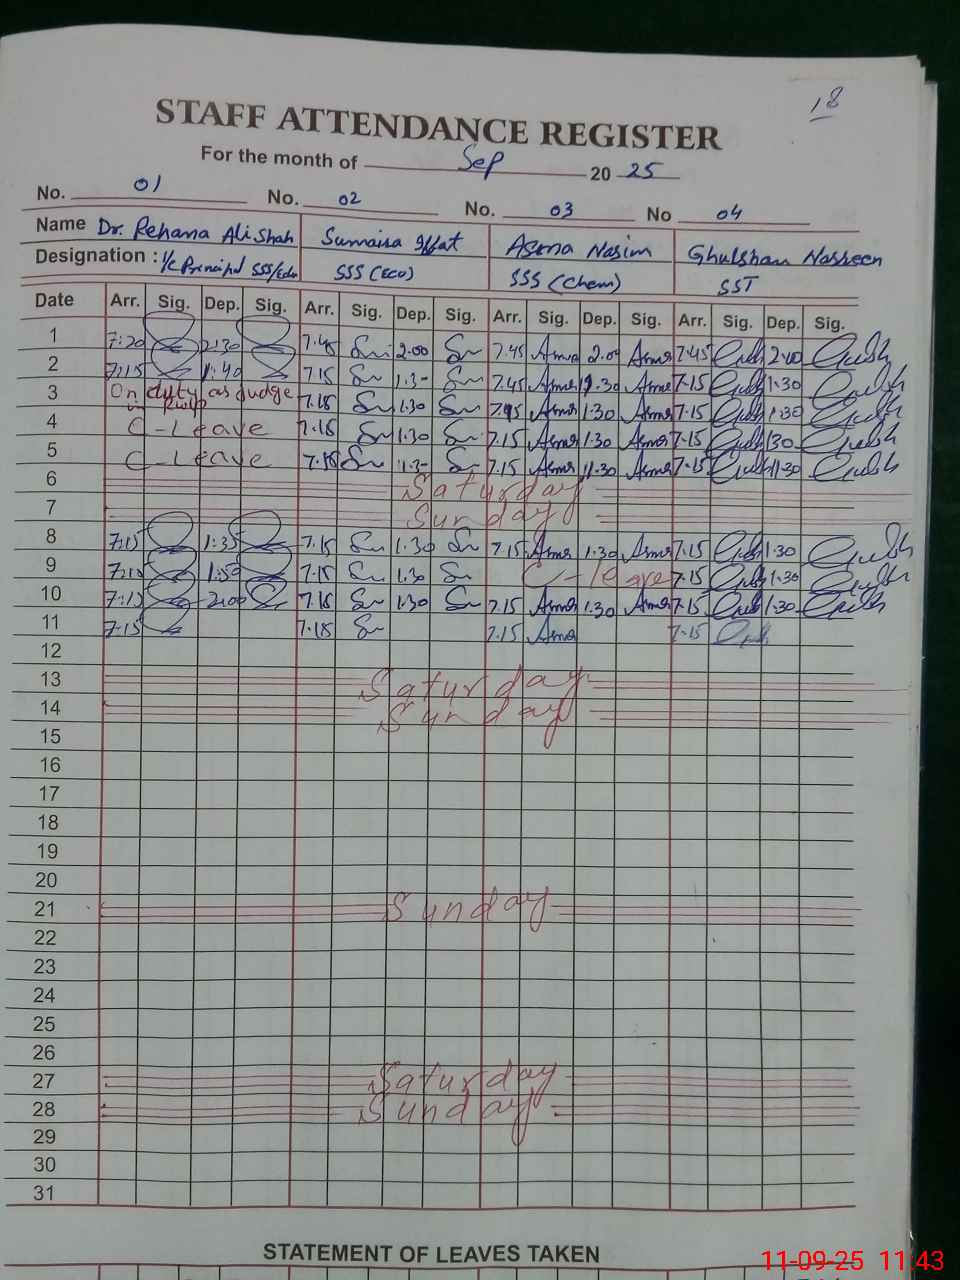 18
STAFF ATTENDANCE REGISTER
For the month of Sep 20 25
No. 01 No. 02 No. 03 No 04
Name Dr. Rehana Ali Shah Sumaira Iffat Asma Nasim Ghulshan Nasreen
Designation : I/C Principal SSS/Edu SSS (Eco) SSS (Chem) SST
Date Arr. Sig. Dep. Sig. Arr. Sig. Dep. Sig. Arr. Sig. Dep. Sig. Arr. Sig. Dep. Sig.
1 7:20 2:30 7.45 2.00 7.45 Asma 2.00 Asma 7.45 2.00
2 7:15 1:40 7.15 1.3- 7.45 Asma 1.30 Asma 7.15 1.30
3 On duty as judge 7.15 1.30 7.15 Asma 1.30 Asma 7.15 1.30
in RWP
4 C-Leave 7.15 1.30 7.15 Asma 1.30 Asma 7.15 130
5 C-Leave 7.15 1.3- 7.15 Asma 1.30 Asma 7.15 1.30
6 Saturday
7 Sunday
8 7:15 1:35 7.15 1.30 7.15 Asma 1.30 Asma 7.15 1.30
9 7:10 1:50 7.15 1.30 C-leave 7.15 1.30
10 7:15 2:00 7.15 1.30 7.15 Asma 1.30 Asma 7.15 1.30
11 7:15 7.15 7.15 Asma 7.15
12
13 Saturday
14 Sunday
15
16
17
18
19
20
21 Sunday
22
23
24
25
26
27 Saturday
28 Sunday
29
30
31
STATEMENT OF LEAVES TAKEN
11-09-25 11:43